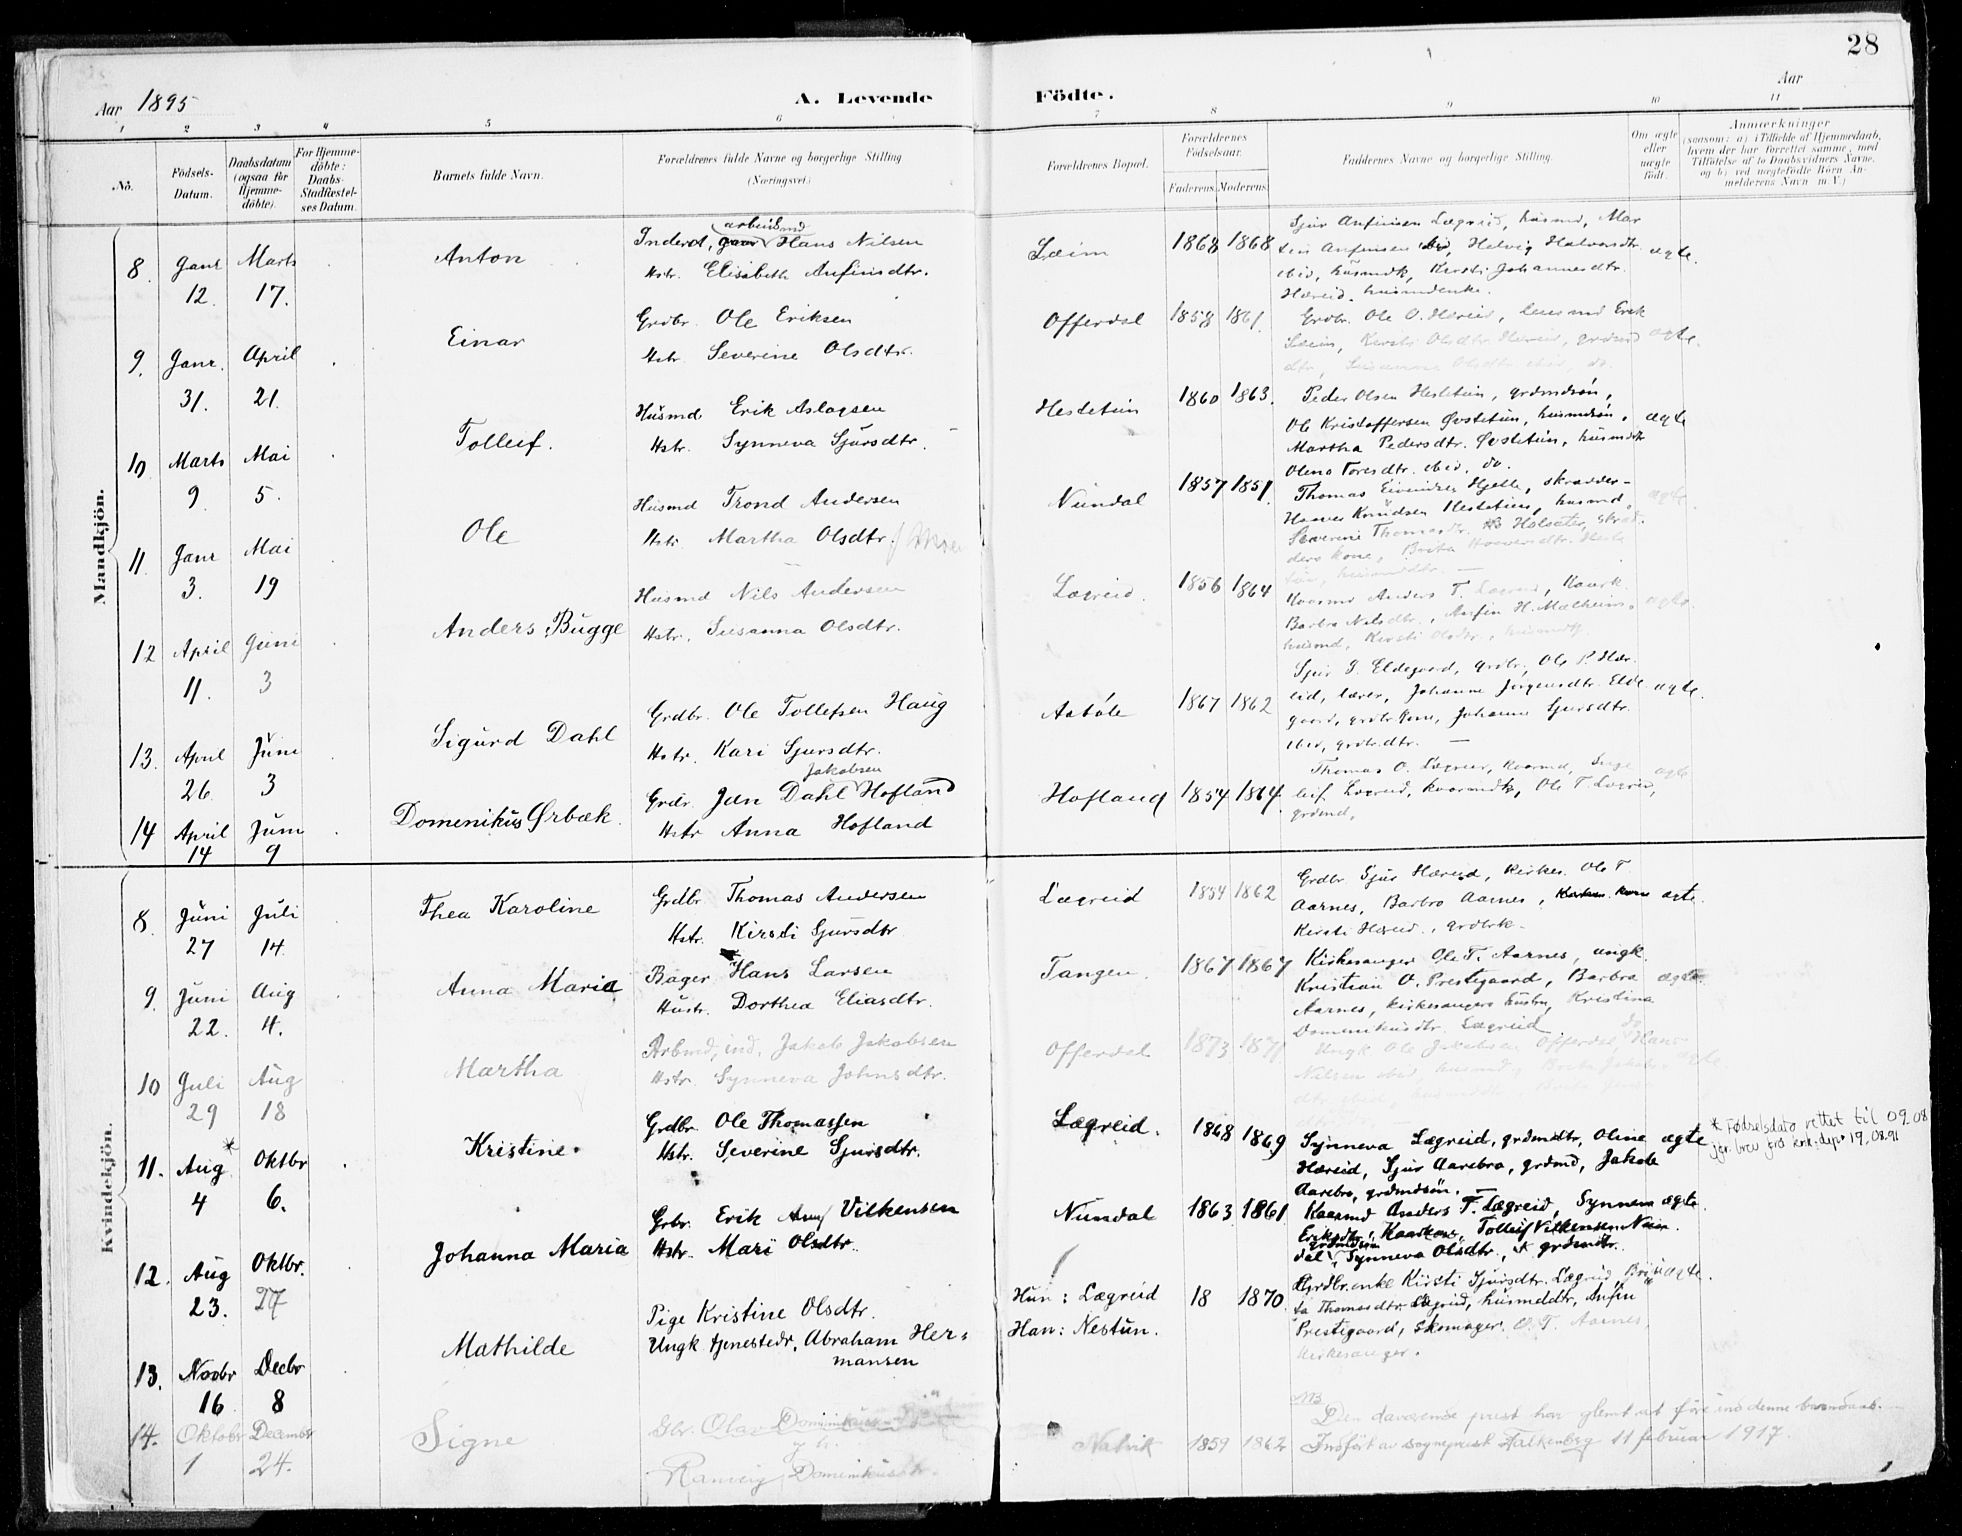 28
Aar 1895 A. Levende Födte. Aar
1 2 3 4 5 6 7 8 9 10 11
No. Födsels-Datum. Daabsdatum (ogsaa for Hjemme-döbte). For Hjemme-döbte: Daabs-Stadfæstel-ses Datum. Barnets fulde Navn. Forældrenes fulde Navne og borgerlige Stilling (Næringsvei). Forældrenes Bopæl. Forældrenes Födselsaar. Faderens. Moderens. Faddernes Navne og borgerlige Stilling. Om ægte eller uægte födt. Anmærkninger (saasom: a) i Tilfælde af Hjemmedaab, hvem der har forrettet samme, med Tilföielse af to Daabsvidners Navne, og b) ved uægtefödte Börn Anmelderens Navn m.V.)
Mandkjön.
8. Janr 12. Marts 17. Anton
Inderst, arbeidsmd Hans Nilsen
Hstr. Elisabeth Anfinsdtr.
Læim 1868 1868
Sjur Anfinsen Lægreid, husmd, Mar
tin Anfinsen ibid, Helvig Halvorsdtr
ibid, husmdk, Kirsti Johannesdtr.
Hæreid, husmdenke.
ægte.
9. Janr. 31. April 21. Einar
Grdbr. Ole Eriksen
Hstr. Severine Olsdtr.
Offerdal 1858 1861.
Grdbr. Ole O. Hæreid, leiesmd Erik
Læim, Kirsti Olsdtr Hæreid, grdmd
dtr, Susanne Olsdtr ibid, do.
ægte.
10 Marts 9. Mai 5. Tolleif.
Husmd Erik Aslagsen
Hstr. Synneva Sjursdtr.
Hestetun 1860 1863.
Peder Olsen Hestetun, grdmdsön,
Ole Kristoffersen Øvstetun, husmdsön,
Martha Pedersdtr. Øvstetun, husmdk
Olena Toresdtr. ibid, do.
ægte
11. Janr 3. Mai 19 Ole
Husmd Trond Andersen
Hstr. Martha Olsdtr.
Nundal 1857 1851
Thomas Eivindsen Hjelle, skrædder-
Haaver Knudsen Hestetun, husmd,
Severine Thomasdtr. Holsæter, skræd.
ders kone, Brita Haaversdtr. Heste
tun, husmdtr.
ægte
12 April 11. Juni 3 Anders Bugge
Husmd Nils Andersen
Hstr. Susanna Olsdtr.
Lægreid. 1856 1864
Kaarmd Anders T. Lægreid, Kaark.
Barbro Nilsdtr., Anfin H. Mælheim,
husmd, Kirsti Olsdtr., husmdk
ægte
13. April 26. Juni 3 Sigurd Dahl
Grdbr. Ole Tollefsen Haug
Hstr. Kari Sjursdtr.
Aaböle 1867 1862
Sjur J. Eldegaard, grdbr, Ole P. Hær
eid, lærer, Johanne Jörgensdtr. Elde
gaard, grdbrkone, Johanne Sjursdtr.
ibid, grdbrdtr.
ægte.
14 April 14 Juni 9 Domenikus Ørbæk.
Grdr. Jan Dahl Jakobsen Hofland
Hstr Anna Hofland
Hofland 1854 1864
Thomas O. Lægreid, kaarmd, Inge
leif Lægreid, kaarmdk, Ole T. Lægreid,
grdmd.
ægte
Kvindekjön.
8. Juni 27 Juli 14. Thea Karoline
Grdbr Thomas Andersen
Hstr. Kirsti Sjursdtr
Lægreid 1854 1862
Grdbr. Sjur Hæreid, kirkes. Ole T.
Aarnes, Barbro Aarnes,
Kirsti Hæreid, grdbrk.
ægte.
9. Juni 22. Aug 4. Anna Maria
Bager Hans Larsen
Hustr. Dorthea Eliasdtr.
Tangen. 1867 1867
Kirkesanger Ole T. Aarnes, ungk.
Kristian O. Prestegaard, Barbra
Aarnes, kirkesangers hustru, Kristina
Domenikusdtr. Lægreid.
ægte.
10 Juli 29 Aug 18 Martha
Arbmd, ind. Jakob Jakobsen
Hstr. Synneva Johnsdtr.
Offerdal 1873 1871
Ungk Ole Jakobsen Offerdal, Hans
Nilsen ibid, husmd, Brita Jakobs
ægte.
11. Aug* 4 Oktbr 6. Kristine.
Grdbr. Ole Thomassen
Hstr. Severine Sjursdtr.
Lægreid. 1868 1869
Synneva Lægreid, grdmdtr, Oline
Hæreid, Sjur Aarebro, grdmd, Jakob
Aarebro, grdmdsön.
ægte
* Fødselsdato rettet til 09.08
jfr. brev fra kirk.dep. 19.08.91
12. Aug 23. Oktbr. 27 Johanna Maria
Grbr. Erik Vilkensen
Hstr. Mari Olsdtr.
Nundal 1863 1861
Kaarmd Anders T. Lægreid, Synneva
Eriksdtr, Kaarkone, Tolleif Vilkensen Nun
dal, grdmdsön Synneva Olsdtr., grdmdtr.
ægte
13. Novbr 16 Decbr 8 Mathilde
Pige Kristine Olsdtr.
Ungk tjenestedr, Abraham Her-
mansen
Hun: Lægreid
Han: Nestun.
18 1870.
Grdbr.enke Kirsti Sjursdtr. Lægreid, Bri
ta Thomasdtr Lægreid, husmddtr, Anfin
Prestegaard, skomager. O. T. Aarnes,
kirkesanger.
uægte.
14. Oktobr 1 December 24. Signe
Gbr. Olav Dominikus
g. h.
Ranveig Dominikusdtr.
Natvik 1859 1862
NB
Den daværende prest har glemt at före ind denne barndaab.
Indfört av sogneprest Falkenberg 11 februar 1917.